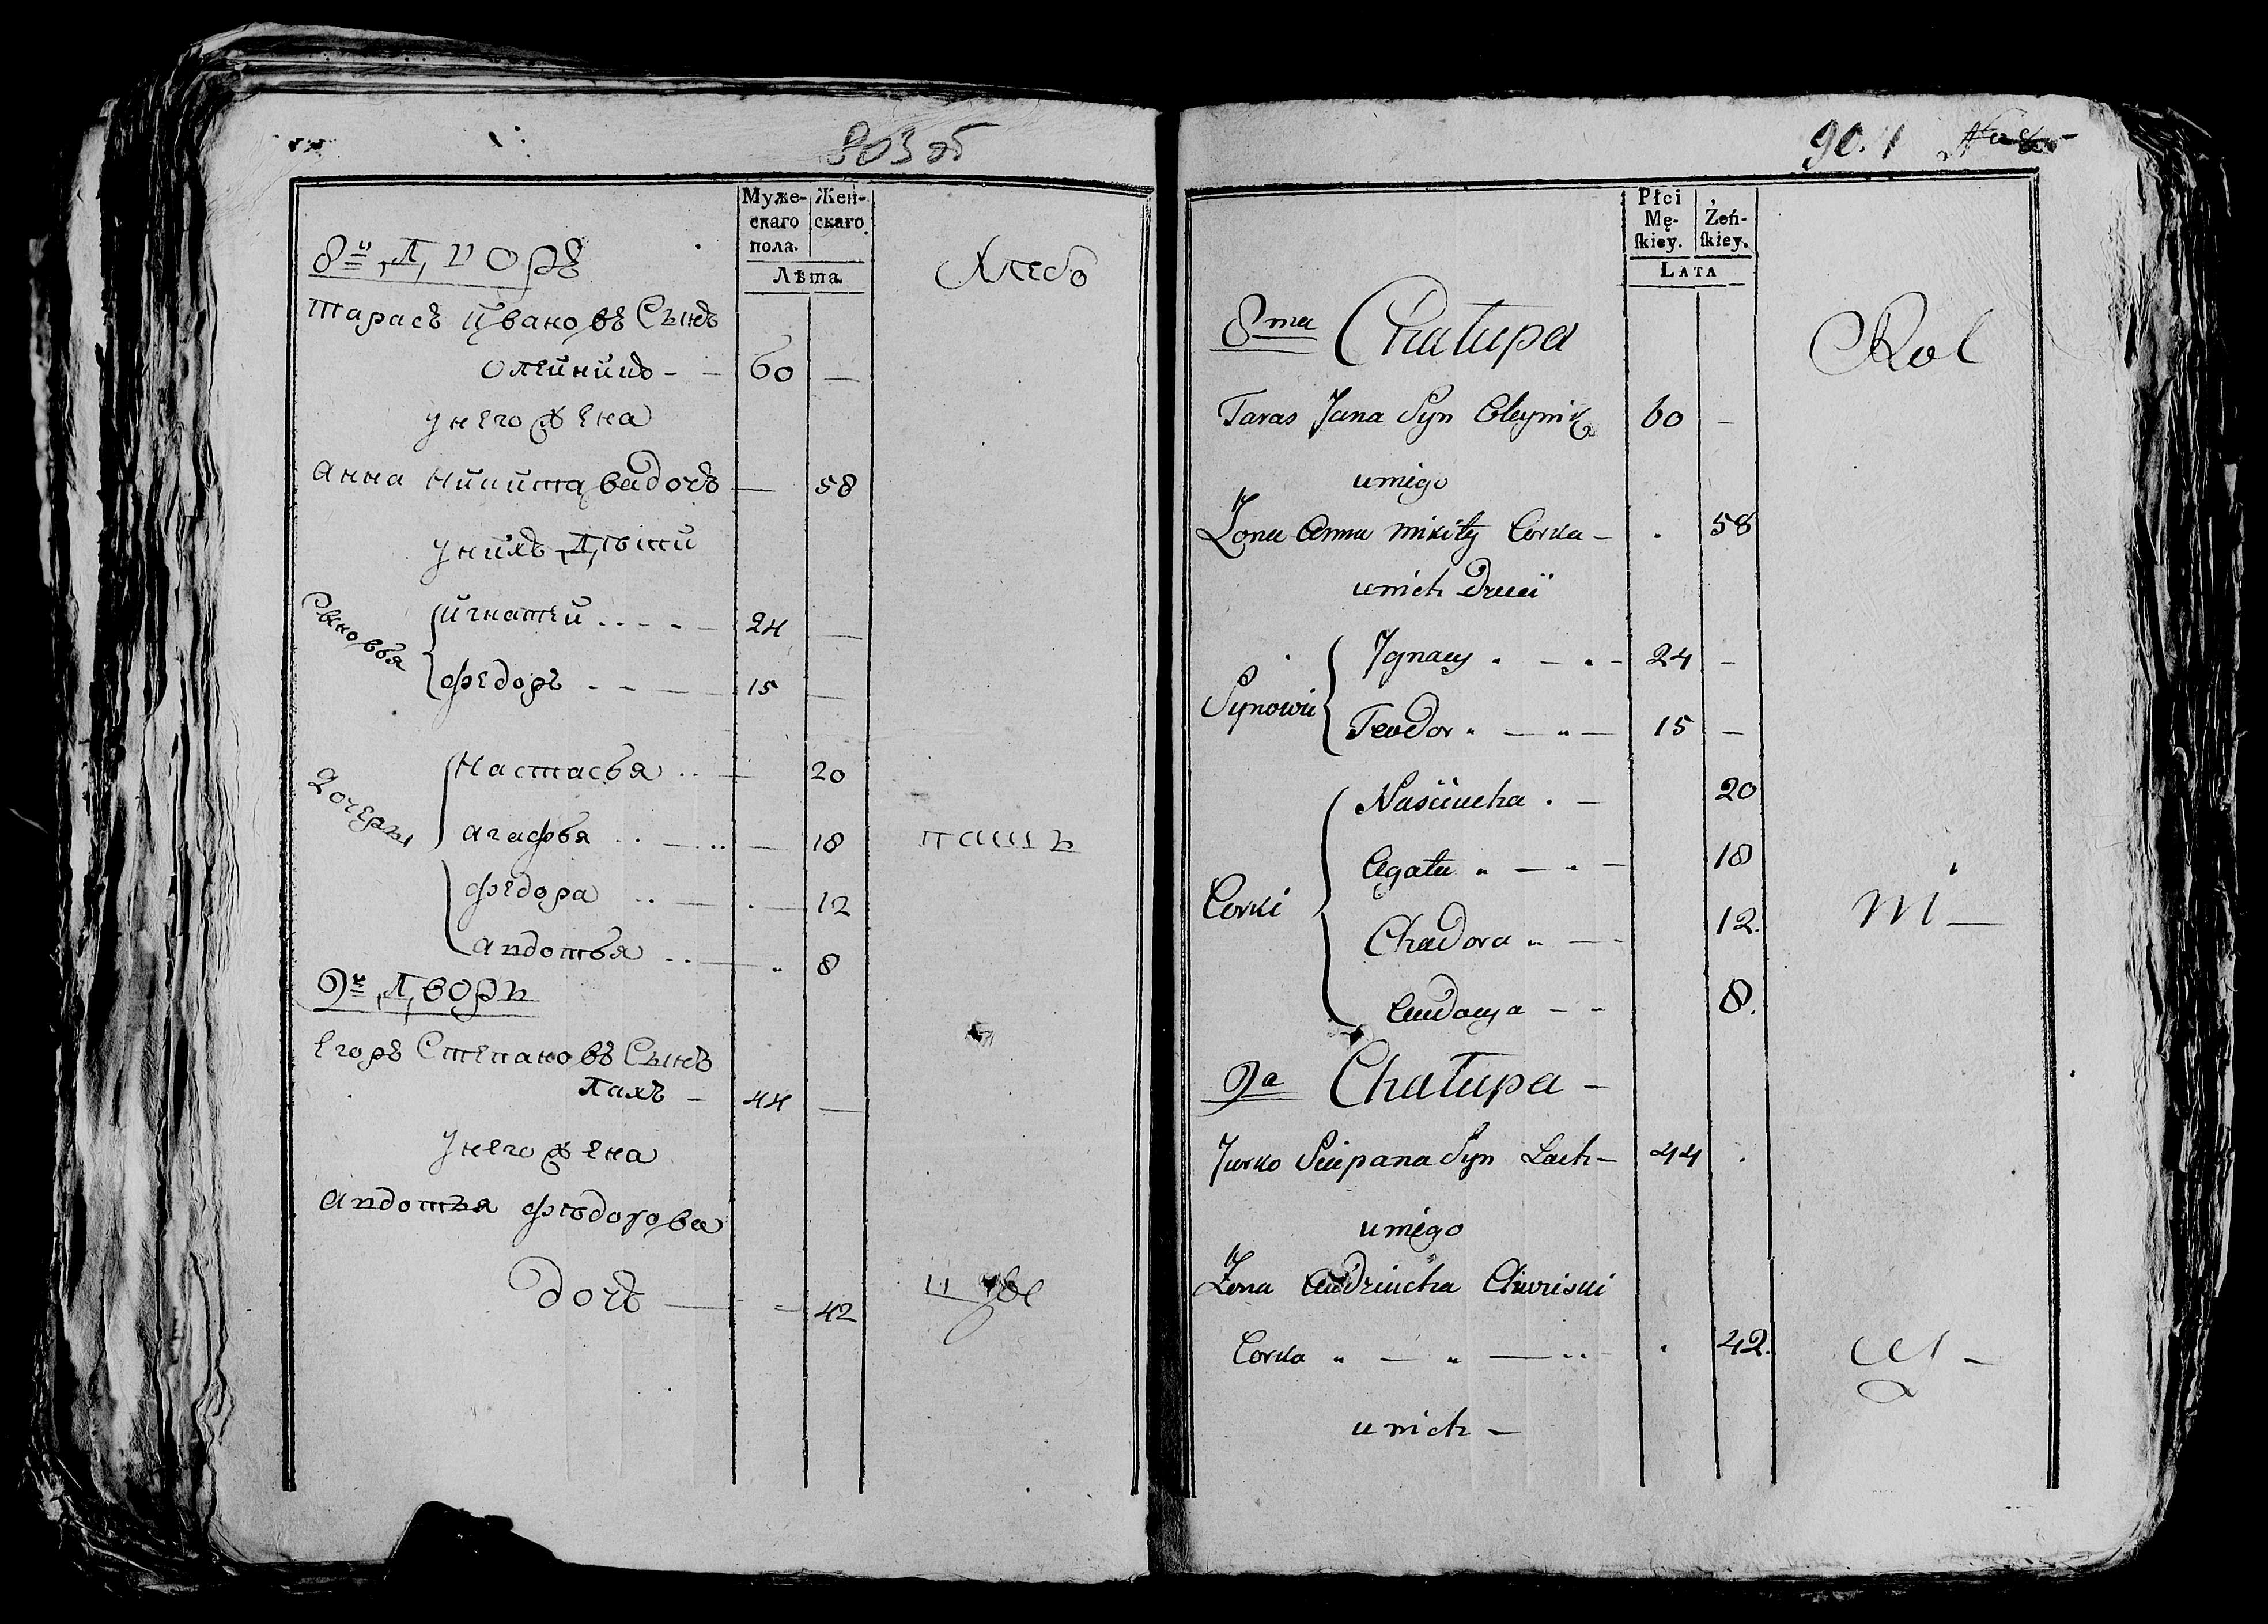 803 об
Муже-
скаго
пола.
Жен-
скаго
Лѣта.
8й Дворъ
Хлебо
Тарасъ Ивановъ Сынъ
Олейникъ - - 60 —
у него жена
Анна Никитавa дочь — 58
у нихъ Дѣти
Сыновья
Игнатей . . - - - 24 —
Федоръ - - - - 15 —
Дочеры
Настасья . . — 20
Агафья . . — . . — 18
пашъ
Федора . . — . — 12
Авдотья . . — „ 8
9й Дворъ
Егоръ Степановъ Сынъ
Лахъ - 44 —
у него жена
Авдотья Фѣодорова
Дочь — - 42
90.1
Płci
Mę-
ſkiey.
Żeń-
ſkiey.
LATA
8ma Chałupa
Rol
Taras Jana Syn Oleynik 60 —
u niego
Żona Anna Mikity Corka - . 58
u nich Dzieci
Synowie
Ignacy . — . - 24 —
Teodor „ — „ — 15 —
Corki
Naściucha . — 20
Agata „ — „ — 18
ni —
Chadora „ — - 12.
Audocya — - 8.
9a Chałupa -
Jurko Sciepana Syn Lach - 44 .
u niego
Żona Audziucha Chwieski
Corka „ — „ — . . - . 42.
u nich —